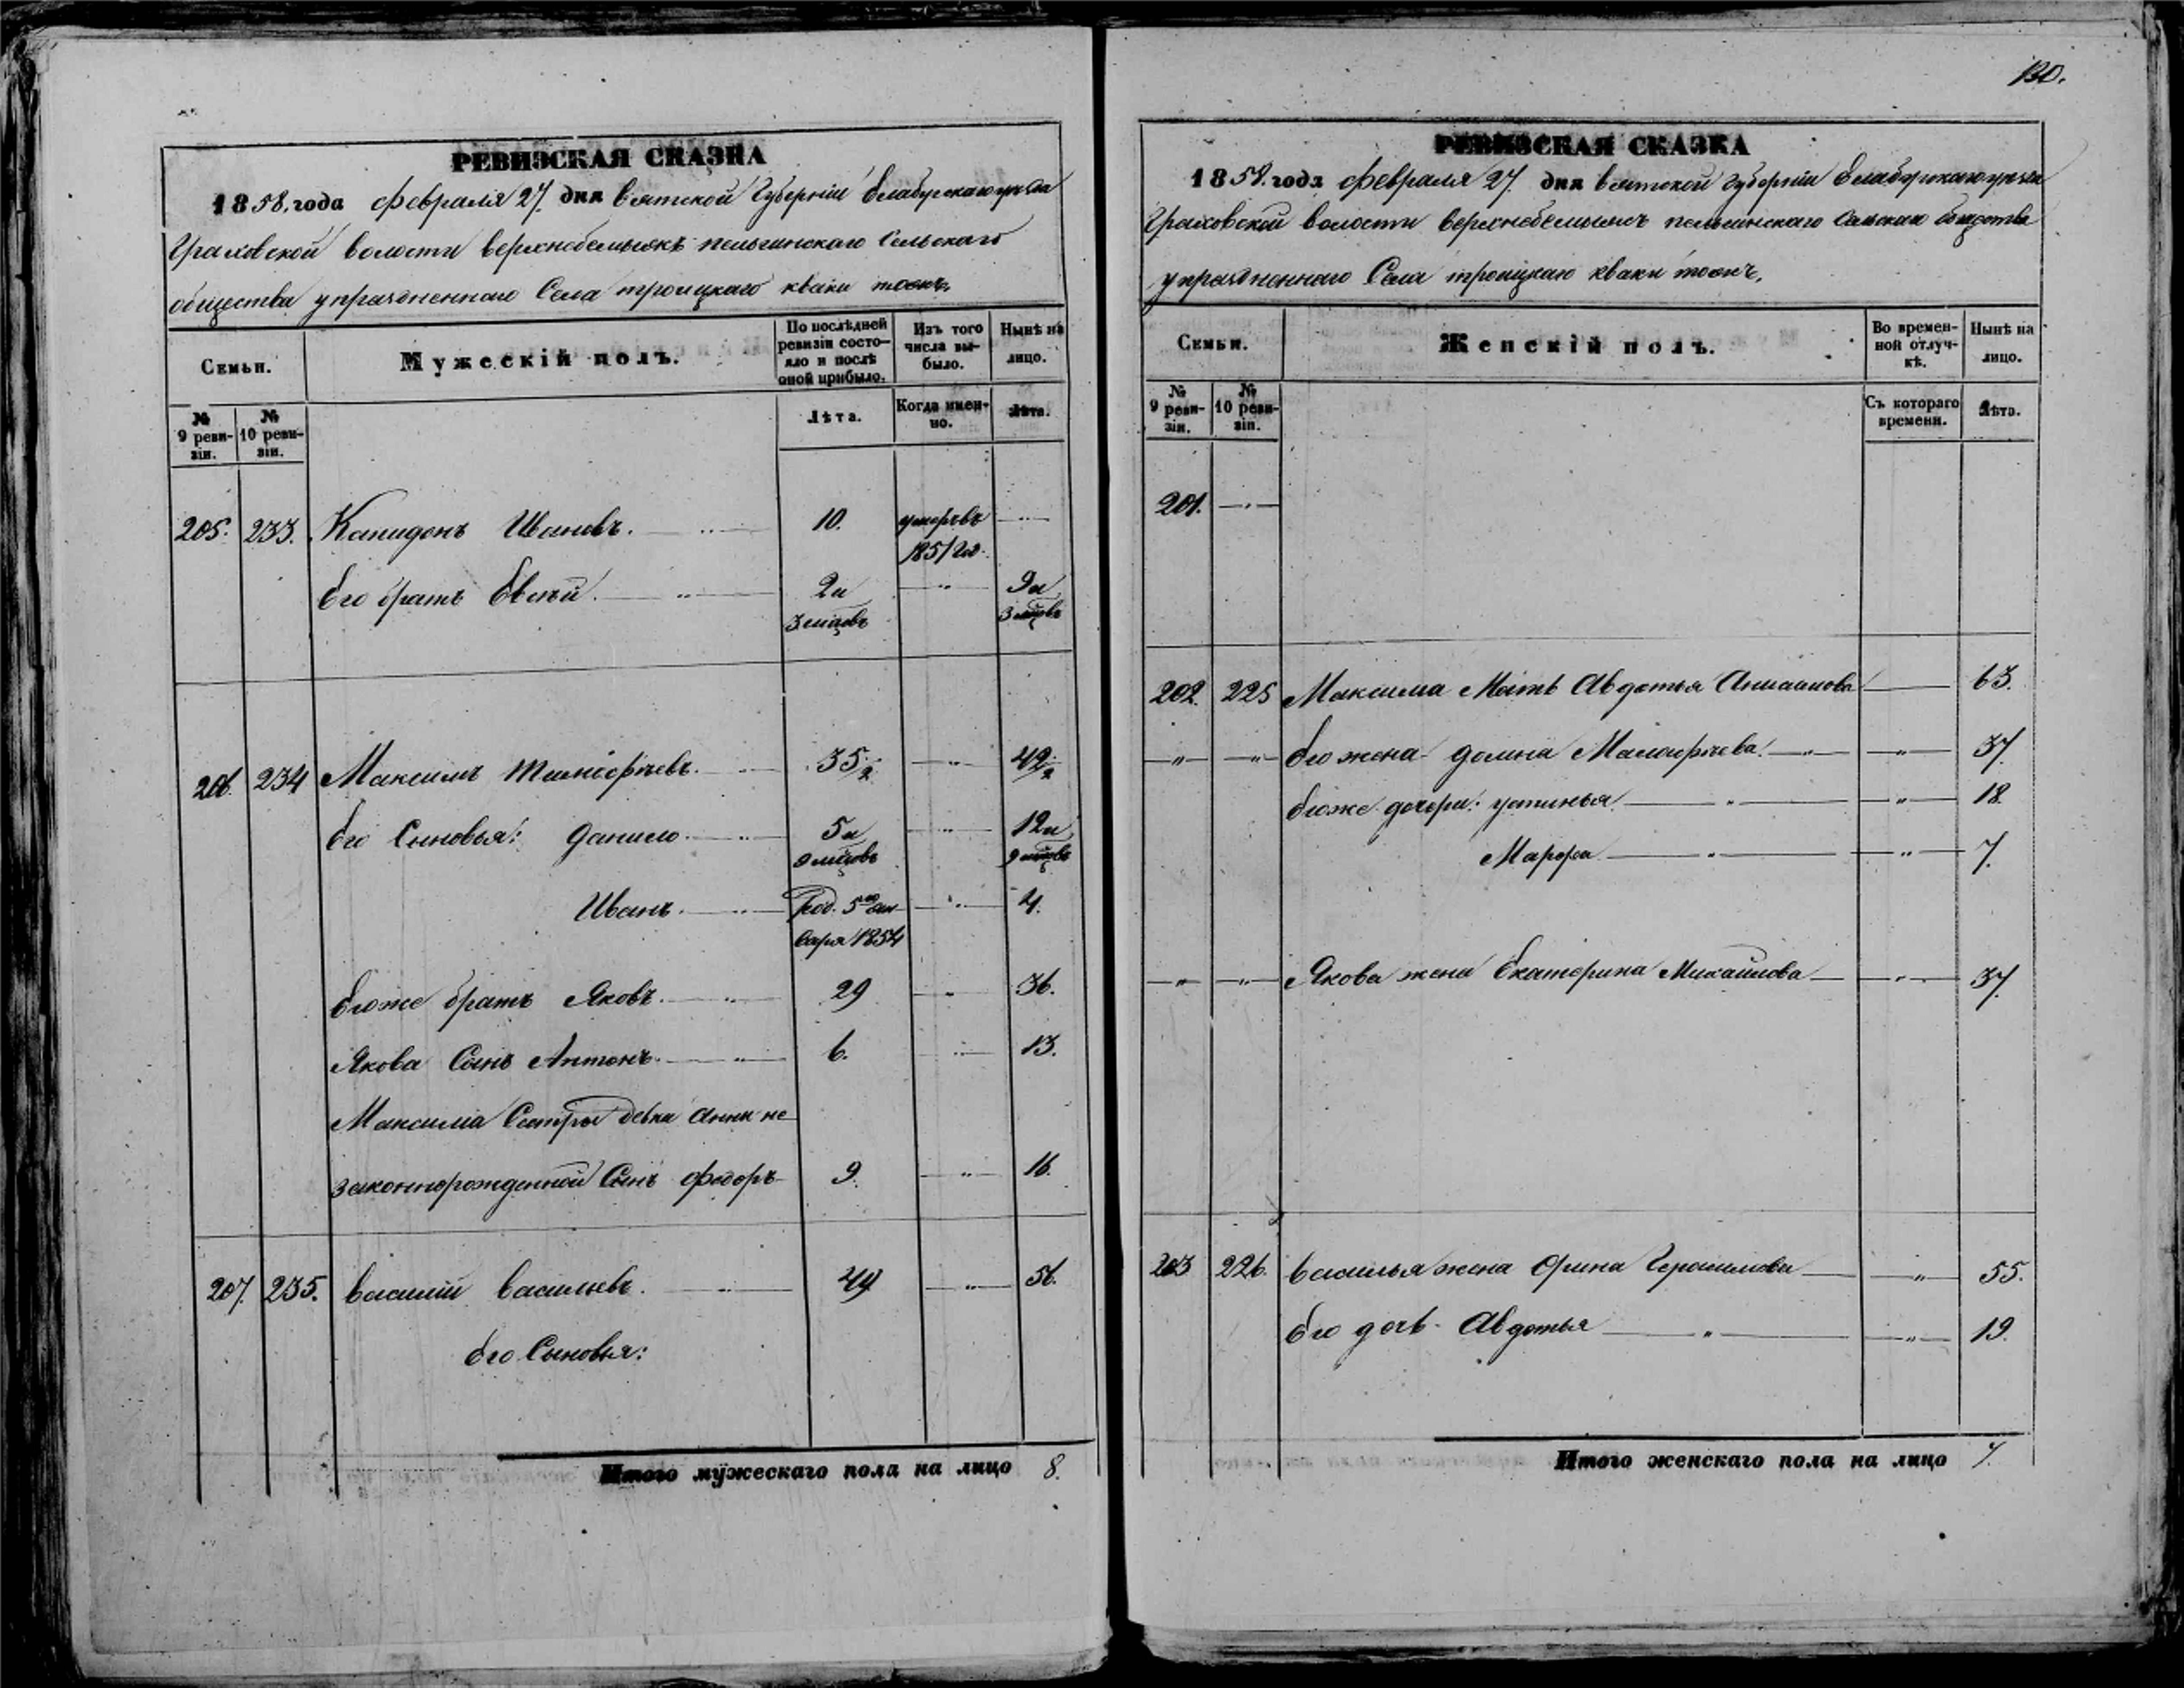 РЕВИЗСКАЯ СКАЗКА
1858. года февраля 27. дня Вятской Губерніи Елабугскаго уѣзда
Граховской волости
общества упраздненнаго Села троицкаго кваки тожъ.
Семьи.
Мужескій полъ.
По послѣдней ревизіи состояло и послѣ оной прибыло.
Изъ того числа выбыло.
Нынѣ на лицо.
№ 9 ревизіи.
№ 10 ревизіи.
Лѣта.
Когда именно.
Лѣта.
205. 233. Капидонъ Ивановъ. 10. умеръ въ
1851 год.
Его братъ Евсѣй. 2 и 9 и
3 мѣцовъ 3 мѣцовъ
206. 234 Максимъ Тимофѣевъ. 35½ 42½
его Сыновья: Данило. 5 и 12 и
9 мѣцовъ 9 мѣцовъ
Иванъ. Род. 5го ян- 4.
варя 1854
Его же братъ Яковъ. 29 36.
Якова Сынъ Антонъ. 6. 13.
Максима Сестры девки Анны не-
законнорожденной Сынъ Федоръ 9. 16.
207. 235. Василій Васильевъ. 49 56.
Его Сыновья:
Итого мужескаго пола на лицо 8.
130.
РЕВИЗСКАЯ СКАЗКА
1858. года февраля 27. дня Вятской Губерніи Елабугскаго уѣзда
Граховской волости Сельскаго общества
упраздненнаго Села троицкаго кваки тожъ.
Семьи.
Женскій полъ.
Во временной отлучкѣ.
Нынѣ на лицо.
№ 9 ревизіи.
№ 10 ревизіи.
Съ котораго времени.
Лѣта.
201.
202. 225 Максима Мать Авдотья 63.
" " Его жена Домна 37.
Его же дочери: устинья " " 18.
Марфа " " 7.
" " Якова жена Екатерина Михайлова " 37.
203 226. Василья жена Орина Герасимова " 55.
Его дочь Авдотья " " 19.
Итого женскаго пола на лицо 7.